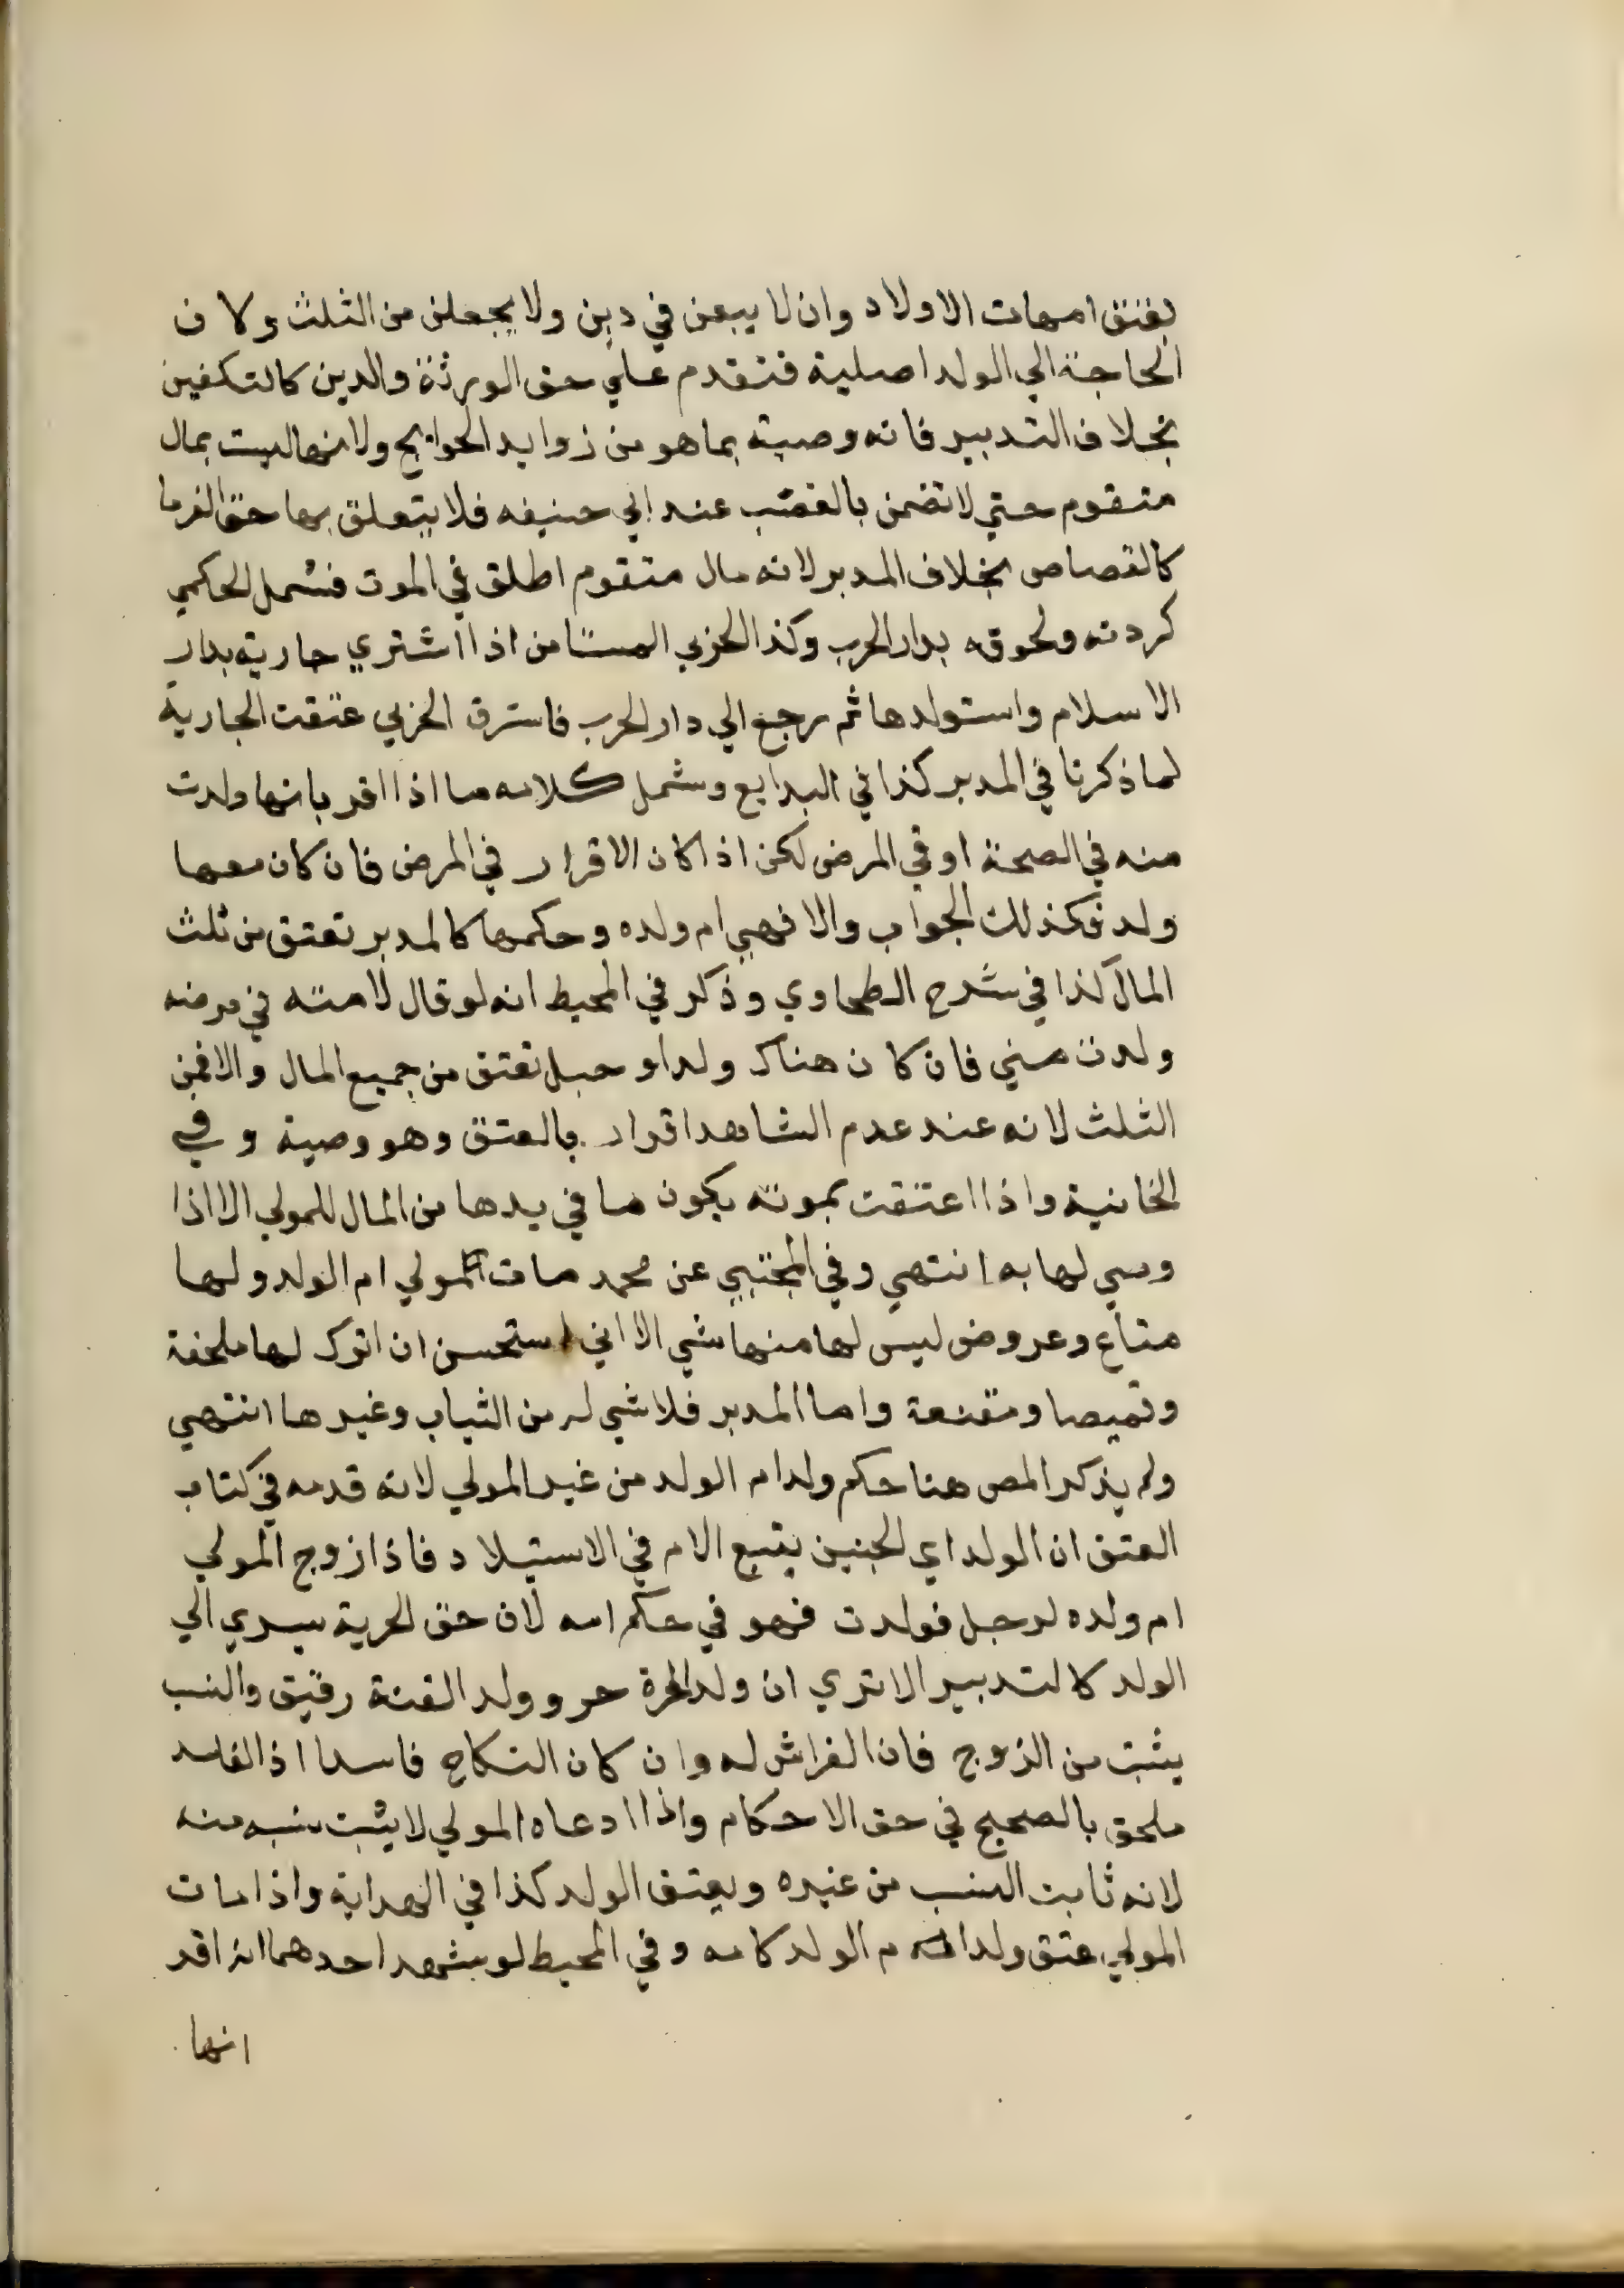 بعتق امهات الاولاد وان لا يبعن في دين ولا يجعلن من الثلث ولان
الحاجة الي الولد اصلية فتقدم علي حق الورثة والدين كالتكفين
بخلاف التدبير فانه وصية بما هو من زوايد الحوايج ولانها ليست بمال
متقوم حتي لا تضمن بالغصب عند ابي حنيفه فلا يتعلق بها حق الغرما
كالقصاص بخلاف المدبر لانه مال متقوم اطلق في الموت فشمل الحكمي
كردته ولحوقه بدار الحرب وكذا الحربي المستامن اذا اشتري جارية بدار
الاسلام واستولدها ثم رجع الي دار الحرب فاسترق الحربي عتقت الجارية
لما ذكرنا في المدبر كذا في البدايع وشمل كلامه ما اذا اقر بانها ولدت
منه في الصحة او في المرض لكن اذا كان الاقرار في المرض فان كان معها
ولد فكذلك الجواب والا فهي ام ولده وحكمها كالمدبر تعتق من ثلث
المال كذا في شرح الطحاوي وذكر في المحيط انه لو قال لامته في مرضه
ولدت مني فان كان هناك ولد او حبل تعتق من جميع المال والا فمن
الثلث لانه عند عدم الشاهد اقرار بالعتق وهو وصية وفي
الخانية واذا اعتقت بموته يكون ما في يدها من المال للمولي الا اذا
وصي لها به انتهي وفي المجتبي عن محمد مات المولي ام الولد ولها
متاع وعروض ليس لها منها شي الا اني استحسن ان اترك لها ملحفة
وقميصا ومقنعة واما المدبر فلا شي له من الثياب وغيرها انتهي
ولم يذكر المص هنا حكم ولد ام الولد من غير المولي لانه قدمه في كتاب
العتق ان الولد اي الجنين يتبع الام في الاستيلاد فاذا زوج المولي
ام ولده لرجل فولدت فهو في حكم امه لان حق الحرية يسري الي
الولد كالتدبير الا تري ان ولد الحرة حر وولد القنة رقيق والنسب
يثبت من الزوج فان الفراش له وان كان النكاح فاسدا اذ الفاسد
ملحق بالصحيح في حق الاحكام واذا ادعاه المولي لا يثبت نسبه منه
لانه ثابت النسب من غيره ويعتق الولد كذا في الهداية واذا مات
المولي عتق ولد ام الولد كامه وفي المحيط لو شهد احدهما انه اقر
انها